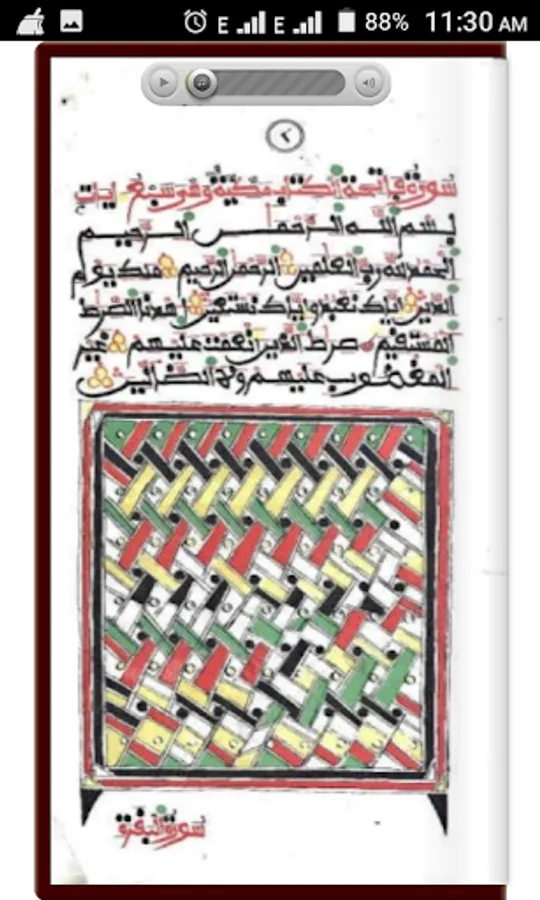 E E 88% 11:30 AM
سورة فاتحة الكتاب مكية وهي سبع ايات
بسم الله الرحمن الرحيم
الحمد لله رب العلمين الرحمن الرحيم ملك يوم
الدين اياك نعبد واياك نستعين اهدنا الصرط
المستقيم صرط الذين انعمت عليهم غير
المغضوب عليهم ولا الضالين
سورة البقرة